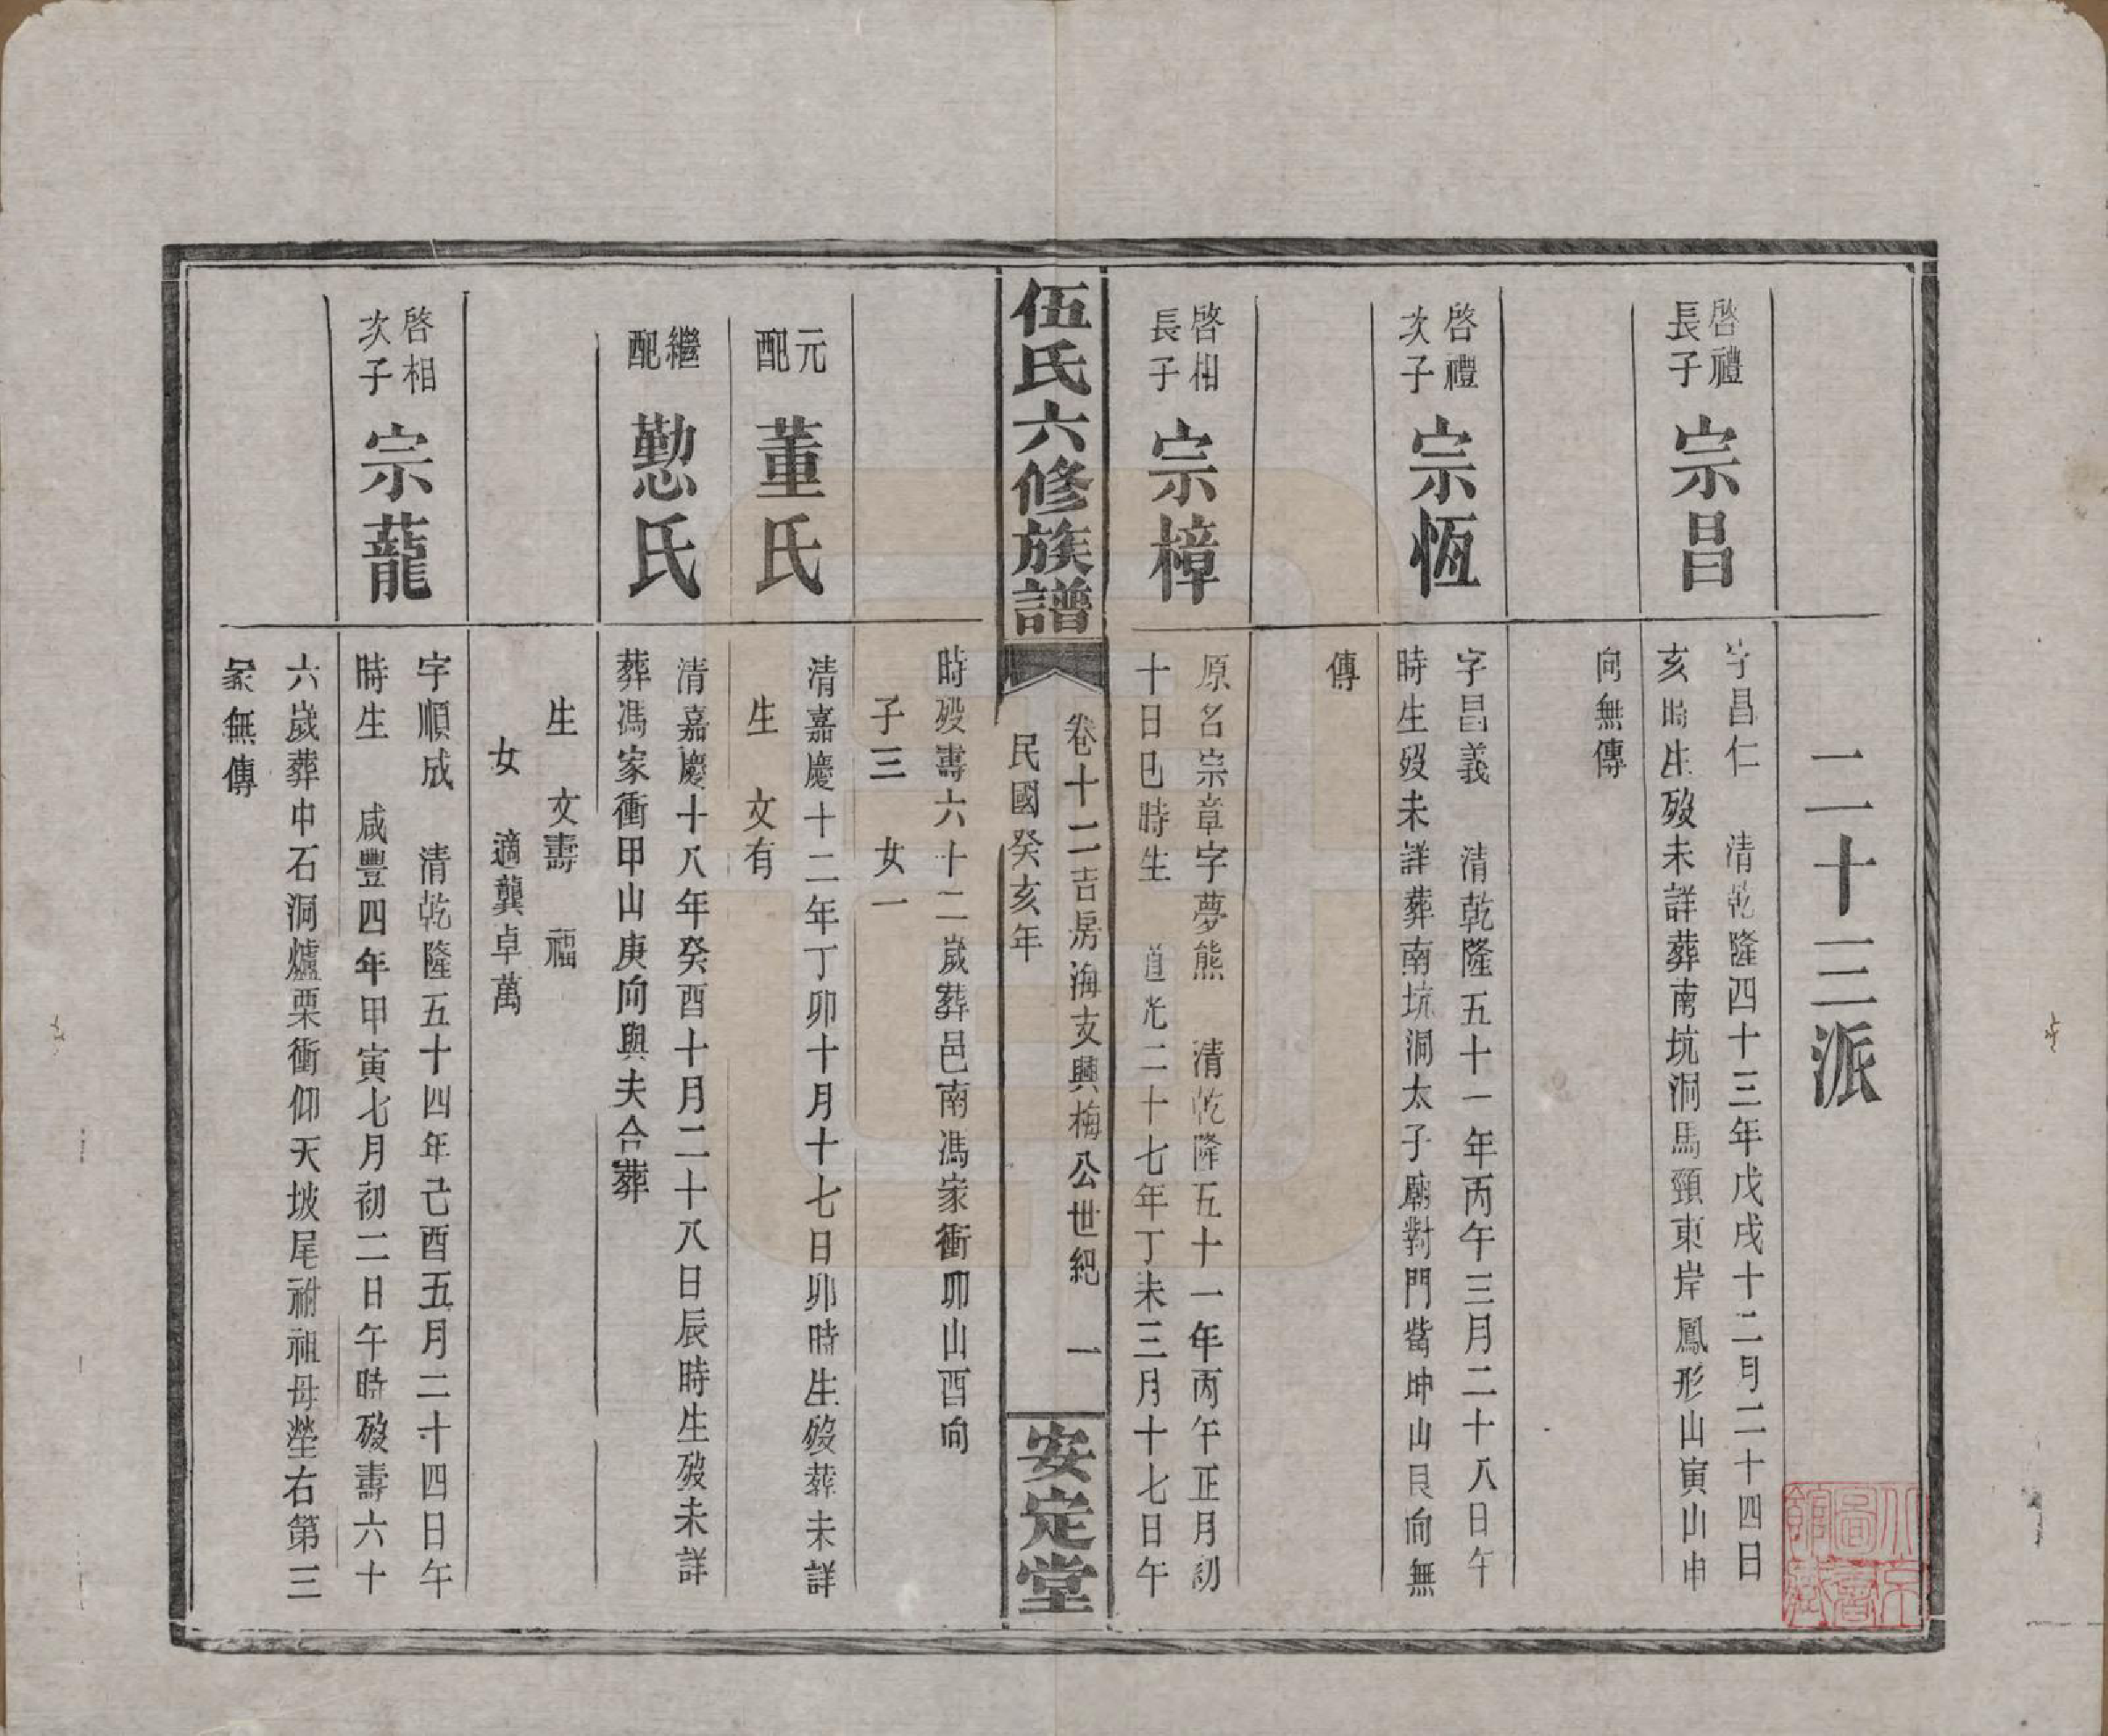 二十三派
啓禮
長子
宗昌
字昌仁　清乾隆四十三年戊戌十二月二十四日
亥時生歿未詳葬南坑洞馬頸東岸鳳形山寅山申
向無傳
啓禮
次子
宗恆
字昌義　清乾隆五十一年丙午三月二十八日午
時生歿未詳葬南坑洞太子廟對門嘴坤山艮向無
傳
啓相
長子
宗樟
原名宗章字夢熊　清乾隆五十一年丙午正月初
十日巳時生　道光二十七年丁未三月十七日午
伍氏六修族譜
卷十二吉房海支興梅公世紀　一
民國癸亥年
安定堂
時歿壽六十二歲葬邑南馮家衝卯山酉向
子三　女一
元
配
董氏
清嘉慶十二年丁卯十月十七日卯時生歿葬未詳
生　文有
繼
配
懃氏
清嘉慶十八年癸酉十月二十八日辰時生歿未詳
葬馮家衝甲山庚向與夫合葬
生　文壽　福
女　適龔卓萬
啓相
次子
宗蘢
字順成　清乾隆五十四年己酉五月二十四日午
時生　咸豐四年甲寅七月初二日午時歿壽六十
六歲葬中石洞爐栗衝仰天坡尾祔祖母塋右第三
冢無傳